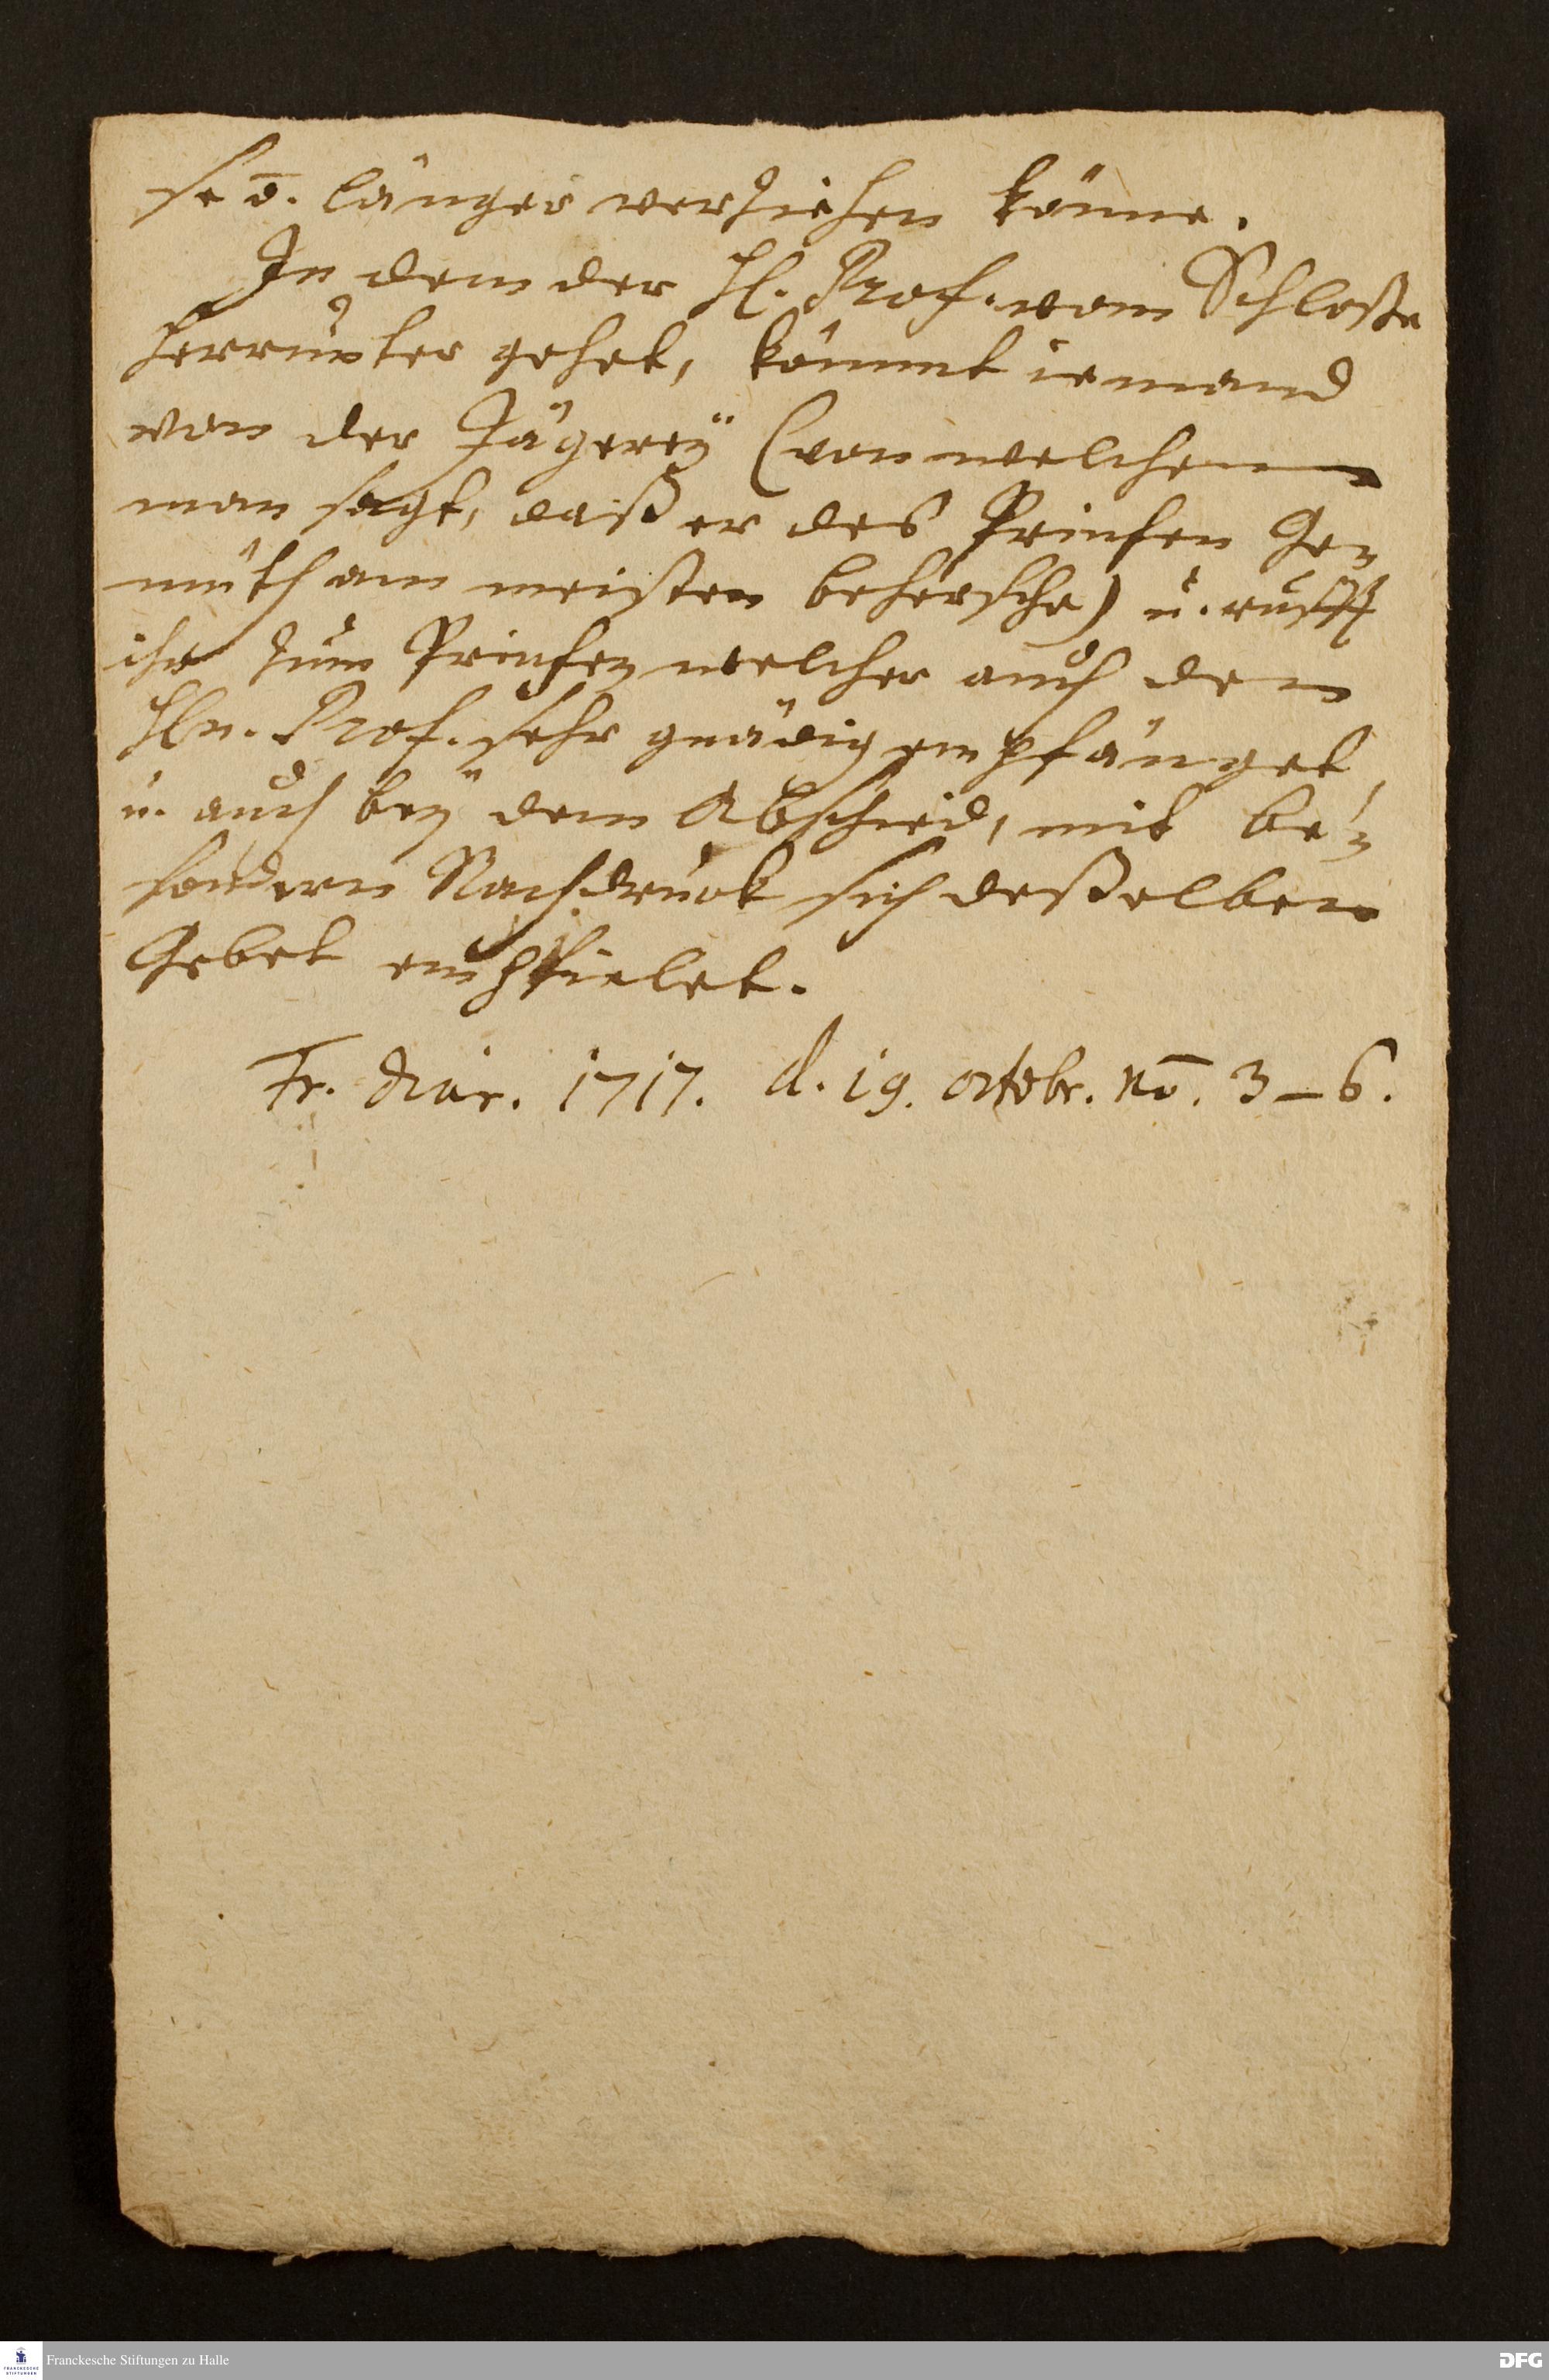 se ō. länger verziehen könne.
In dem der H. Prof. vom Schloße
herrunter gehet, kömmt iemand
von der Jägereÿ (von welchem
man sagt, daß er des Printzen Ge-
müth am meisten behersche) u. rufft
ihn zum Printzen welcher auch den
Hln. Prof. sehr gnädig empfänget,
u. auch beÿ dem Abschied, mit be-
sondern Nachdruck sich deßelben
Gebet empfielet.
Fr. diar. 1717. d. 19. octobr. no. 3–6.
Franckesche Stiftungen zu Halle
FRANCKESCHE STIFTUNGEN
DFG